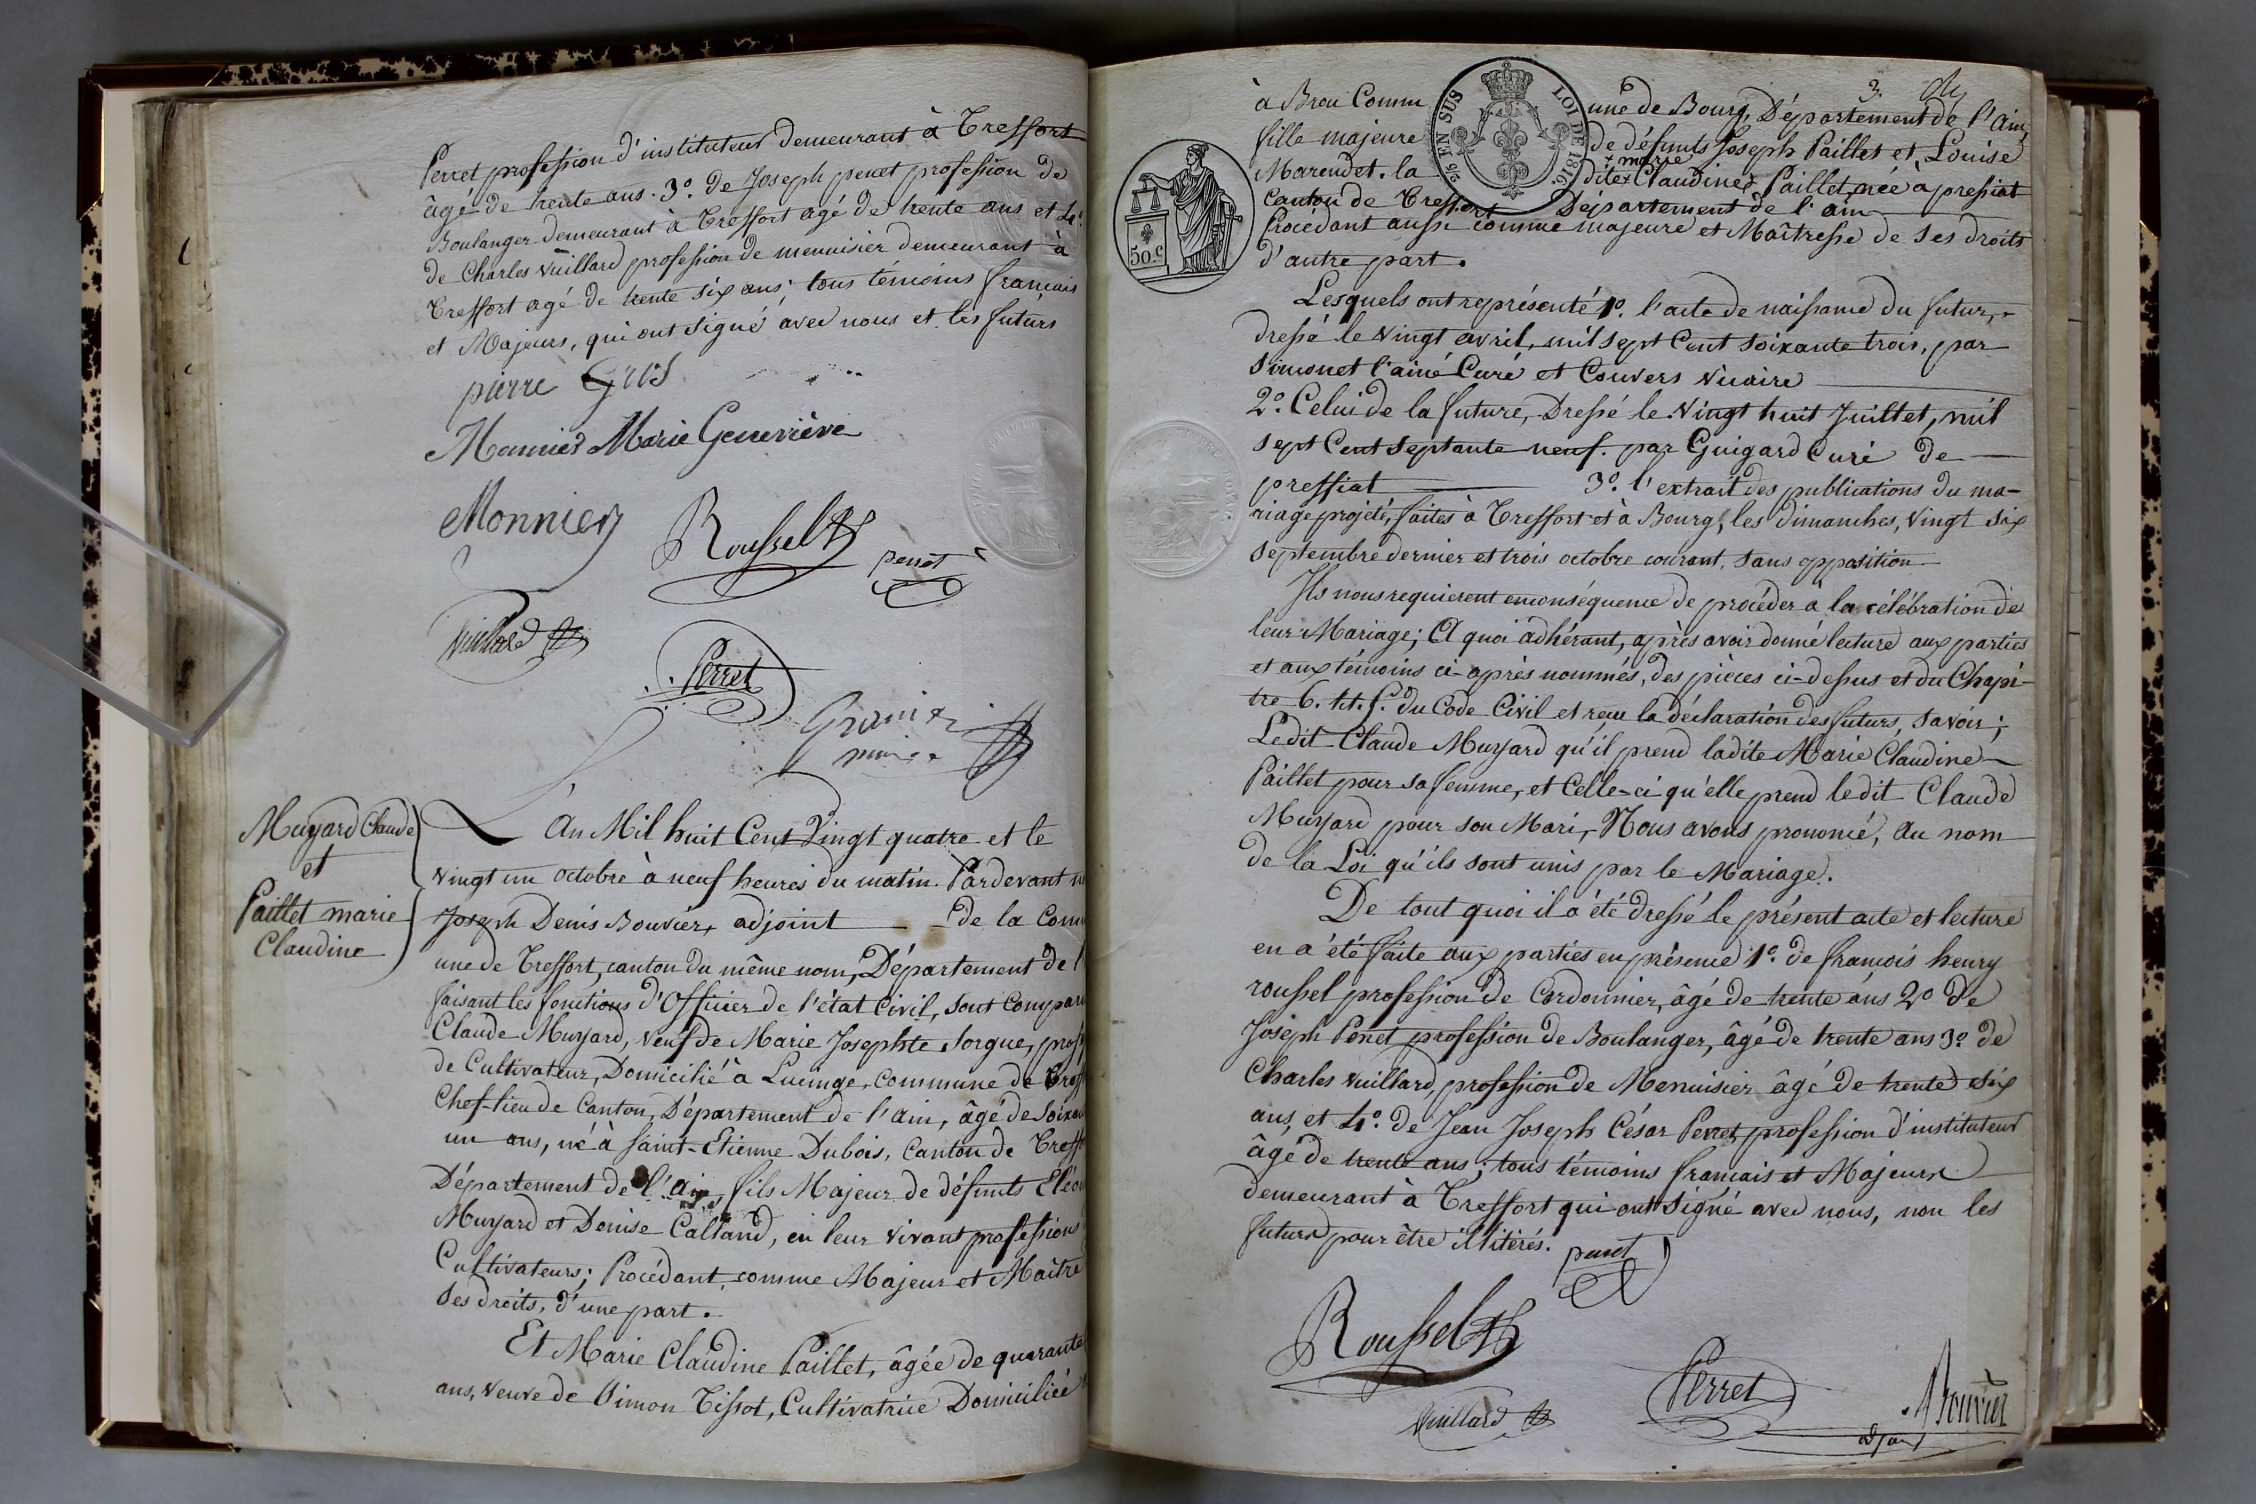 Perret profession d'instituteur demeurant à Treffort
âgé de trente ans. 3.º de Joseph penet profession de
Boulanger demeurant à Treffort agé de trente ans et 4.º
de Charles vuillard profession de menuisier demeurant à
Treffort agé de trente six ans; tous témoins français
et Majeurs, qui ont signé avec nous et les futurs
pierre Gros
Monnier Marie Geneviève
Monnier
Roussel
penet
Vuillard
Perret
Granier
maire
Muyard Claude
et
Paillet marie
Claudine
L'An Mil huit Cent Vingt quatre et le
vingt un octobre à neuf heures du matin. Pardevant n
Joseph Denis Bouvier, adjoint de la Com
une de Treffort, canton du même nom, Département de l'
faisant les fonctions d'Officier de l'état Civil, sont Compar
Claude Muyard, veuf de Marie Josephte Sorgue, prof
de Cultivateur, Domicilié à Lucinge, commune de Tref
Chef-lieu de Canton, Département de l'ain, âgé de Soixan
un ans, né à Saint-Etienne Dubois, Canton de Treff
Département de l'Ain, fils Majeur de défunts Eléo
Muyard et Denise Calland, en leur vivant profession
Cultivateurs; Procédant, comme Majeur et Maître
ses droits, d'une part.
Et Marie Claudine Paillet, âgée de quarante
ans, veuve de Simon Tissot, Cultivatrice Domiciliée
3.
à Brou Comm une de Bourg, Département de l'Ain,
fille majeure de défunts Joseph Paillet et Louise
Marendet. la dite + marie Claudine Paillet, née à pressiat
Canton de Treffort Département de l'ain
Procédant aussi comme majeure et Maîtresse de ses droits
d'autre part.
26 EN SUS
LOI DE 1816.
50.c
Lesquels ont représenté 1.º l'acte de naissance du futur,
dressé le vingt avril, mil sept Cent soixante trois, par
Simonet l'ainé Curé et Convers vicaire
2.º Celui de la future, Dressé le vingt huit Juillet, mil
sept Cent septante neuf. par Guigard Curé de
pressiat 3.º l'extrait des publications du ma-
riage projeté, faites à Treffort et à Bourg, les Dimanches, vingt six
septembre dernier et trois octobre courant, sans opposition
Ils nous requierent enconséquence de procéder à la célébration de
leur Mariage; A quoi adhérant, après avoir donné lecture aux parties
et aux témoins ci après nommés, des pièces ci-dessus et du Chapi-
tre 6. tit. 5. du Code Civil et reçu la déclaration des futurs, savoir;
Ledit Claude Muyard qu'il prend ladite Marie Claudine
Paillet pour sa femme, et Celle-ci qu'elle prend ledit Claude
Muyard pour son Mari, Nous avons prononcé, au nom
de la Loi qu'ils sont unis par le Mariage.
De tout quoi il a été dressé le présent acte et lecture
en a été faite aux parties en présence 1.º de françois henry
roussel profession de Cordonnier, âgé de trente ans 2.º de
Joseph Penet profession de Boulanger, âgé de trente ans 3.º de
Charles vuillard, profession de Menuisier âgé de trente six
ans, et 4.º de Jean Joseph César Perret profession d'instituteur
âgé de trente ans; tous témoins français et Majeurs
demeurant à Treffort qui ont signé avec nous, non les
futurs pour être illitérés.
penet
Roussel
Vuillard
Perret
Bouvier
adjoint